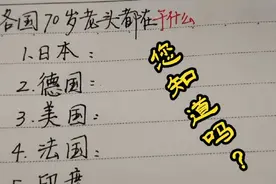 各国70岁老头都在干什么
1.日本：
2.德国：
3.美国：
4.法国：
5.印度
您知道吗?